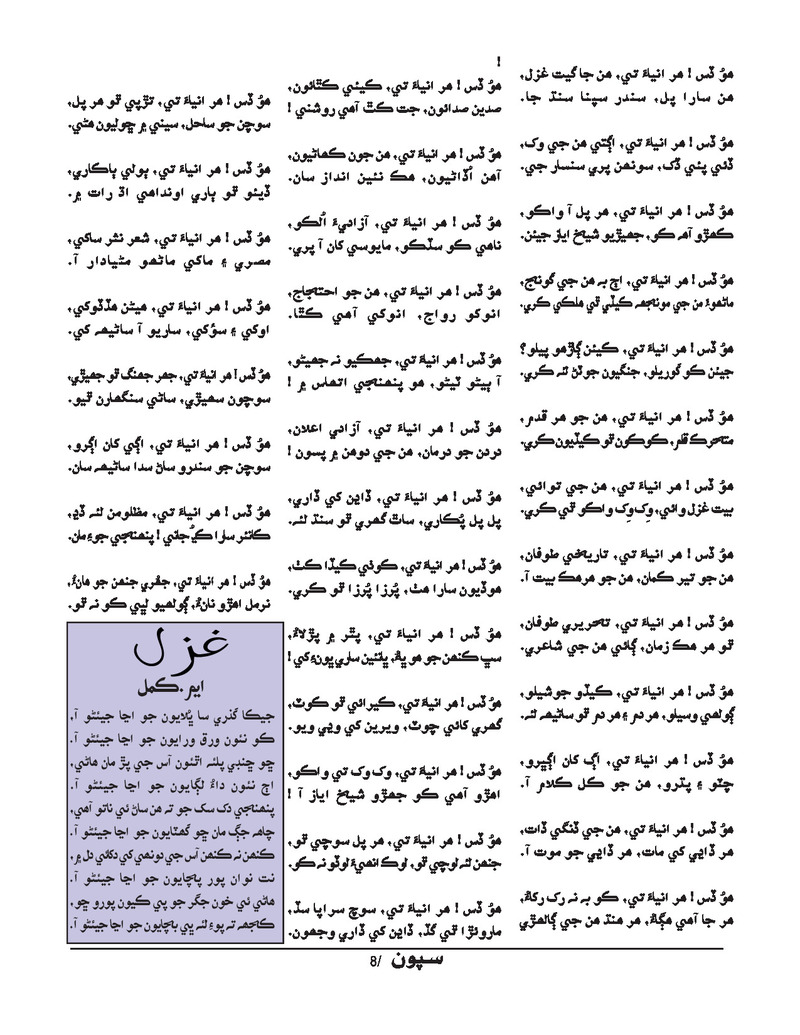 هوُ ڏس ! هر انياءَ تي، هن جا گيت غزل،
هن سارا پل، سندر سپنا سنڌ جا.
هوُ ڏس ! هر انياءَ تي، اڳتي هن جي وک،
ڏئي پئي ڏک، سونهن ڀري سنسار جي.
هوُ ڏس ! هر انياءَ تي، هر پل آ واڪو،
ڪهڙو آهہ ڪو، جهيڙيو شيخ اياز جيئن.
هوُ ڏس ! هر انياءَ تي، اڄ بہ هن جي گونج،
ماڻهوءَ من جي مونجهہ ڪيئي ٿي هلڪي ڪري.
هوُ ڏس ! هر انياءَ تي، ڪيئن ڳاڙهو پيلو؟
جيئن ڪو گوريلو، جنگيون جوٽڻ لئہ ڪري.
هوُ ڏس ! هر انياءَ تي، هن جو هر قدم،
متحرڪ قلم، ڪوڪون ٿو ڪيڏيون ڪري.
هوُ ڏس ! هر انياءَ تي، هن جي توائي،
بيت غزل وائي، وِک وِک واڪو ٿي ڪري.
هوُ ڏس ! هر انياءَ تي، تاريخي طوفان،
هن جو تير ڪمان، هن جو هرهڪ بيت آ.
هوُ ڏس ! هر انياءَ تي، تحريري طوفان،
ٿو هر هڪ زمان، ڳائي هن جي شاعري.
هوُ ڏس ! هر انياءَ تي، ڪيڏو جوشيلو،
ڳولهي وسيلو، هر دم ۽ هر دم ٿو ساٿيھہ لئہ.
هوُ ڏس ! هر انياءَ تي، اڳ کان اڳڀرو،
چٽو ۽ پڌرو، هن جو ڪل ڪلام آ.
هوُ ڏس ! هر انياءَ تي، هن جي ڏنگي ڏات،
هر ڏاڍي کي مات، هر ڏاڍي جو موت آ.
هوُ ڏس ! هر انياءَ تي، ڪو بہ نہ رک رکاءُ،
هر جا آهي هڳاءُ، هر هنڌ هن جي ڳالھڙي
!
هوُ ڏس ! هر انياءَ تي، ڪيئي ڪٿائون،
صدين صدائون، جت ڪٿ آهي روشني !
هوُ ڏس ! هر انياءَ تي، هن جون ڪهاڻيون،
آهن اُڏاڻيون، هڪ نئين انداز سان.
هوُ ڏس ! هر انياءَ تي، آزاديءَ اُلڪو،
ناهي ڪو سٽڪو، مايوسي کان آ پري.
هوُ ڏس ! هر انياءَ تي، هن جو احتجاج،
انوکو رواج، انوکي آهي ڪٿا.
هوُ ڏس ! هر انياءَ تي، جهڪيو نہ جهيڻو،
آ ٻيڻو ٽيڻو، هو پنهنجي اتهاس ۾ !
هوُ ڏس ! هر انياءَ تي، آزادي اعلان،
دردن جو درمان، هن جي دوهن ۾ پسون !
هوُ ڏس ! هر انياءَ تي، ڏاڍن کي ڏاري،
پل پل پُڪاري، ساٿ گهري ٿو سنڌ لئہ.
هوُ ڏس ! هر انياءَ تي، ڪوئي ڪيڏا ڪٺ،
موڏيون سارا هٺ، پُرزا پُرزا ٿو ڪري.
هوُ ڏس ! هر انياءَ تي، پٿر ۾ پڙلاءُ،
سڀ ڪنهن جو هو ڀاءُ، ڀائين ساري ڀونءِ کي !
هوُ ڏس ! هر انياءَ تي، ڪيرائي ٿو ڪوٽ،
گهري کائي چوٽ، ويرين کي وڍي ويو.
هوُ ڏس ! هر انياءَ تي، وک وک تي واڪو،
اهڙو آهي ڪو جهڙو شيخ اياز آ !
هوُ ڏس ! هر انياءَ تي، هر پل سوچي ٿو،
جنهن لئہ لوچي ٿو، لوڪ انھيءَ لوڏو نہ ڪو.
هوُ ڏس ! هر انياءَ تي، سوچ سراپا سڏ،
ماروئڙا ٿي گڏ، ڏاڍن کي ڏاري وجهون.
هوُ ڏس ! هر انياءَ تي، تڙپي ٿو هر پل،
سوچن جو ساحل، سيني ۾ ڇوليون هڻي.
هوُ ڏس ! هر انياءَ تي، ٻولي ٻاڪاري،
ڏيئو ٿو ٻاري اونداهي اڌ رات ۾.
هوُ ڏس ! هر انياءَ تي، شعر نثر ساکي،
مصري ۽ ماکي ماڻهو مڻيادار آ.
هوُ ڏس ! هر انياءَ تي، هيڻن هڏڏوکي،
اوکي ۽ سؤکي، ساريو آ ساڻيھہ کي.
هوُ ڏس ! هر انياءَ تي، جهر جهنگ ٿو جهيڙي،
سوچون سهيڙي، ساٿي سنگهارن ٿيو.
هوُ ڏس ! هر انياءَ تي، اڳي کان اڳرو،
سوچن جو سندرو ساڻ سدا ساڻيھہ سان.
هوُ ڏس ! هر انياءَ تي، مظلومن لئہ ڏڍ،
ڪانئر سارا ڪيُ جائي ! پنهنجي جوءِ مان.
هوُ ڏس ! هر انياءَ تي، جڳري جنهن جو هانءُ،
نرمل اهڙو نانءُ، ڳولهيو لڀي ڪو نہ ٿو.
غزل
ايم.ڪمل
جيڪا گذري سا ڀُلايون جو اڃا جيئڻو آ،
ڪو نئون ورق ورايون جو اڃا جيئڻو آ.
ڇو ڇنڊي پلئہ اٿئون آس جي پڙ مان هاڻي،
اڄ نئون داءُ لڳايون جو اڃا جيئڻو آ.
پنهنجي دک سک جو تہ هن ساڻ ئي ناتو آهي،
چاهہ جڳ مان ڇو گهٽايون جو اڃا جيئڻو آ.
ڪنهن نہ ڪنهن آس جي دونهي کي دکائي دل ۾،
نت نوان پور پچايون جو اڃا جيئڻو آ.
هاڻي ئي خون جگر جو پي ڪيون پورو ڇو،
ڪجهہ تہ پوءِ لئہ ڀي بچايون جو اڃا جيئڻو آ.
سپون /8